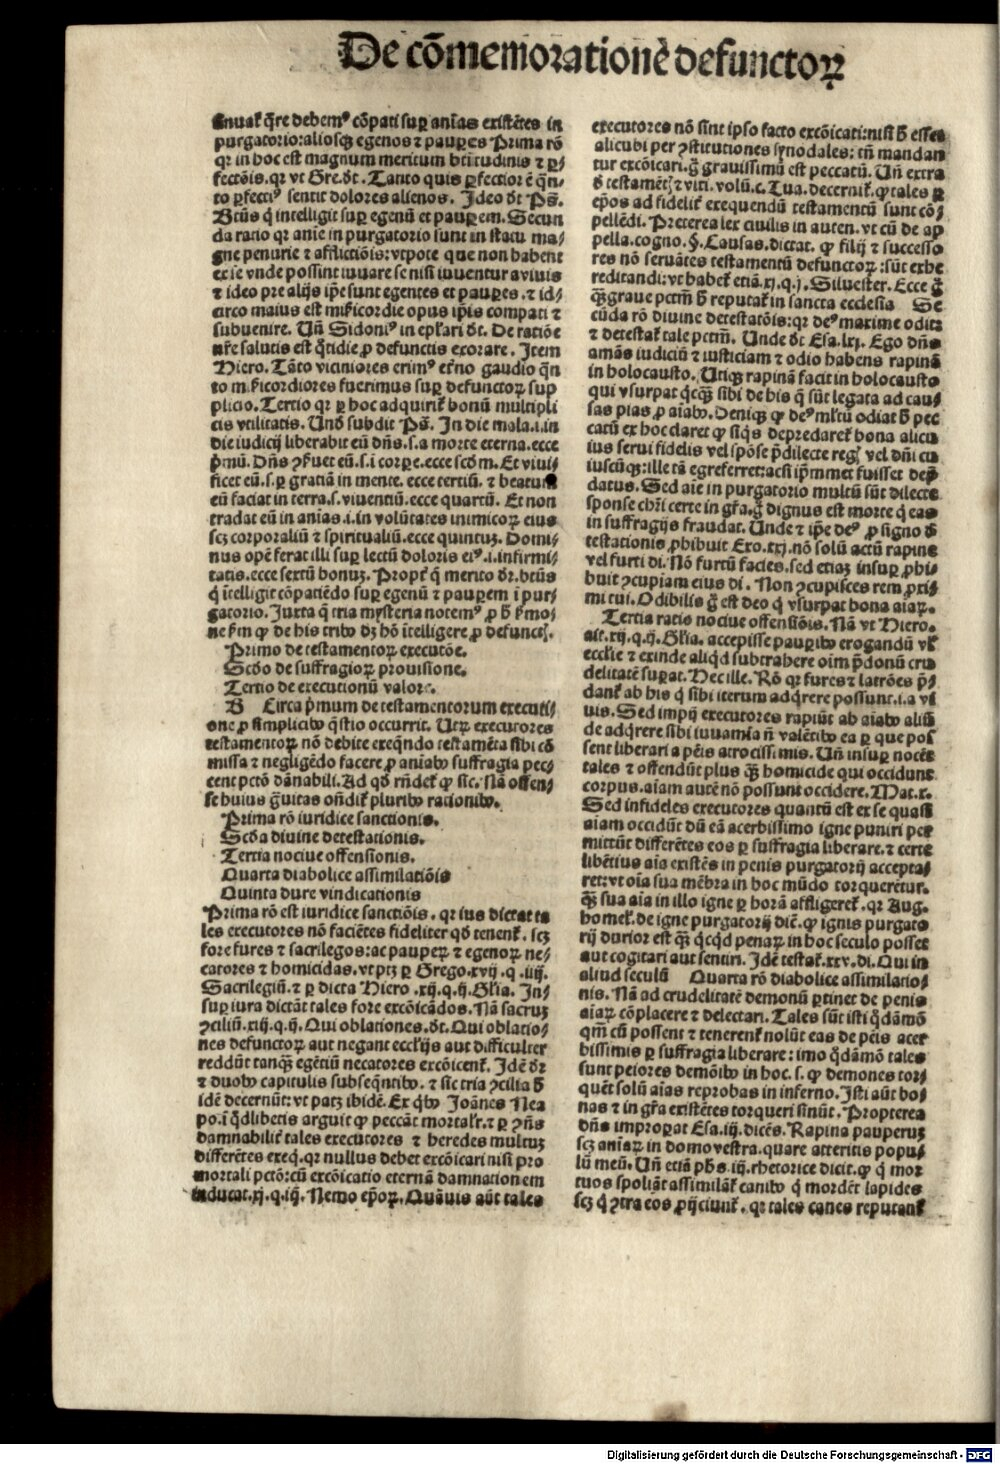 De cōmemorationē defunctoꝝ
purgatorio: aliosqꝫ egenos ⁊ pauꝑes Prima rō
qꝛ in hoc est magnum meritum btītudinis ⁊ ꝑ-
fectōis. qꝛ vt Gre. dt. Tanto quis ꝑfectior ē q̄n-
to ꝑfectiꝰ sentit dolores alienos. Ideo dt Ps̄.
Btūs q̄ intelligit suꝑ egenū et pauꝑem. Secun
da ratio qꝛ anīe in purgatorio sunt in statu ma-
gne penurie ⁊ afflictiōis: vtpote que non habent
ex se vnde possint iuuare se nisi iuuentur a viuis
⁊ ideo pre alijs ip̄e sunt egentes et pauꝑes. ⁊ id-
circo maius est mīcordie opus ip̄is compati ⁊
subuenire. Un̄ Sidoniꝰ in ep̄lari dt. De ratiōe
nr̄e salutis est q̄tidie ꝓ defunctis exorare. Item
Hiero. Tāto viciniores erimꝰ et̄no gaudio q̄n
to m̄icordiores fuerimus suꝑ defunctoꝝ sup
plicio. Tertio qꝛ ꝑ hoc adquirit̄ bonū multipli
cis vtilitatis. Und̄ subdit Ps̄. In die mala. i. in
die iudicij liberabit eū dn̄s. s. a morte eterna. ecce
p̄mū. Dn̄s ꝯẜuet eū. s. i corpe. ecce scd̄m. Et viui-
ficet eū. s. ꝑ gratiā in mente. ecce tertiū. ⁊ beatum
eū faciat in terra. s. viuentiū. ecce quartū. Et non
tradat eū in anīas. i. in volūtates inimicoꝝ eius
scꝫ corporaliū ⁊ spiritualiū. ecce quintuꝫ. Domi-
nus opē ferat illi suꝑ lectū doloris eiꝰ. i. infirmi-
tatis. ecce sextū bonuꝫ. Propt̄ q̄ merito dr̄. btūs
q̄ ītelligit cōpatiēdo suꝑ egenū ⁊ pauꝑem i pur-
gatorio. Juxta q̄ tria mysteria notemꝰ ꝓ h̄ ẜmo-
ne ẜm ꝙ de his tribꝰ dꝫ hō ītelligere ꝓ defunctꝭ.
Primo de testamentoꝝ executōe.
Scd̄o de suffragioꝝ prouisione.
Tertio de executionū valore.
B Circa p̄mum de testamentorum executi-
one ꝓ simplicibꝰ q̄stio occurrit. Utꝝ executores
testamentoꝝ nō debite exeq̄ndo testamēta sibi cō
missa ⁊ negligēdo facere ꝓ aniabꝰ suffragia pec-
cent pctō dānabili. Ad qd̄ rn̄det̄ ꝙ sic. Nā offen-
se huius gͣuitas on̄dit̄ pluribꝰ racionibꝰ.
Prima rō iuridice sanctionis.
Scd̄a diuine detestationis.
Tertia nociue offensionis.
Quarta diabolice assimilatiōis
Quinta dure vindicationis
Prima rō est iuridice sanctiōis. qꝛ ius dictat ta
les executores nō faciētes fideliter qd̄ tenent̄. scꝫ
fore fures ⁊ sacrilegos: ac pauꝑeꝝ ⁊ egenoꝝ ne-
catores ⁊ homicidas. vt ptꝫ ꝑ Grego. xvij. q. iiij.
Sacrilegiū. ⁊ ꝑ dicta Hiero. xij. q. ij. Glīa. In-
suꝑ iura dictāt tales fore excōicādos. Nā sacruꝫ
ꝯciliū. xiij. q. ij. Qui oblationes. dt. Qui oblatio-
nes defunctoꝝ aut negant eccl̄ijs aut difficulter
reddūt tanqꝫ egētiū necatores excōicent̄. Idē dr̄
⁊ duobꝰ capitulis subseq̄ntibꝰ. ⁊ sic tria ꝯcilia h̄
idē decernūt: vt patꝫ ibidē. Ex q̄bꝰ Joānes Nea
po. ī q̄dlibetis arguit ꝙ peccāt mortal̄r. ⁊ ꝑ ꝯn̄s
damnabilit̄ tales executores ⁊ heredes multuꝫ
differētes exeq̄. qꝛ nullus debet excōicari nisi pro
mortali pctō: cū excōicatio eternā damnationem
inducat. xj. q. iij. Nemo ep̄oꝝ. Quāuis aūt tales
executores nō sint ipso facto excōicati: nisi h̄ esset
alicubi per ꝯstitutiones synodales: tn̄ mandan
tur excōicari. g̊ grauissimū est peccatū. Un̄ extra
d̄ testamētꝭ ⁊ vlti. volū. c. Tua. decernit̄. ꝙ tales ꝑ
ep̄os ad fidelit̄ exequendū testamentū sunt cō-
pellēdi. Preterea lex ciuilis in auten. vt cū de ap
pella. cogno. §. Causas. dictat. ꝙ filij ⁊ successo
res nō seruātes testamentū defunctoꝝ: sūt exhe
reditandi: vt habet̄ etiā. xj. q. j. Siluester. Ecce g̊
qͣꝫ graue pctm̄ h̄ reputat̄ in sancta ecclesia Se
cūda rō diuine detestatōis: qꝛ deꝰ maxime odit
⁊ detestat̄ tale pctm̄. Unde dt Esa. lxj. Ego dn̄s
amās iudiciū ⁊ iusticiam ⁊ odio habens rapinā
in holocausto. Utiqꝫ rapinā facit in holocausto
qui vsurpat q̄cqͣꝫ sibi de his q̄ sūt legata ad cau-
sas pias ꝓ aīabꝰ. Deniqꝫ ꝙ deꝰ ml̄tū odiat h̄ pec
catū ex hoc claret ꝙ siq̄s depredaret̄ bona alicu
ius serui fidelis vel spōse p̄dilecte regꝭ vel dn̄i cu
iuscūqꝫ: ille tā egre ferret: acsi ip̄mmet fuisset dep̄
datus. Sed aīe in purgatorio multū sūt dilecte
sponse chr̄i certe in gr̄a. g̊ dignus est morte q̄ eas
in suffragijs fraudat. Unde ⁊ ip̄e deꝰ ꝓ signo d̄
testationis ꝓhibuit Exo. xxj. nō solū actū rapine
vel furti di. Nō furtū facies. sed etiaꝫ insuꝑ ꝓhi-
buit ꝯcupiam eius di. Non ꝯcupisces rem ꝓxi-
mi tui. Odibilis g̊ est deo q̄ vsurpat bona aiaꝝ.
Tertia ratis nociue offensiōis. Nā vt Hiero.
ait. xij. q. ij. Glīa. accepisse pauꝑibꝰ erogandū vl̄
eccl̄ie ⁊ exinde aliqd̄ subtrahere oīm p̄donū cru
delitatē suꝑat. Hec ille. Rō qꝛ fures ⁊ latrōes p̄-
dant̄ ab his q̄ sibi iterum adq̄rere possunt. i. a vi
uis. Sed impij executores rapiūt ab aīabꝰ aliū
de adq̄rere sibi iuuamīa n̄ valētibꝰ ea ꝑ que pos
sent liberari a pēis atrocissimis. Un̄ insuꝑ nocēt
tales ⁊ offendūt plus qͣꝫ homicide qui occidunt
corpus. aiam autē nō possunt occidere. Mat. x.
Sed infideles executores quantū est ex se quasi
aiam occidūt dū eā acerbissimo igne puniri per
mittūt differētes eos ꝑ suffragia liberare. ⁊ certe
libētius aīa existēs in penis purgatorij accepta-
ret: vt oīa sua mēbra in hoc mūdo torquerētur.
qͣꝫ sua aīa in illo igne ꝑ horā affligeret̄. qꝛ Aug.
homel. de igne purgatorij dic̄. ꝙ ignis purgato
rij durior est qͣꝫ q̄cqd̄ penaꝝ in hoc seculo posset
aut cogitari aut sentiri. Idē testat̄. xxv. di. Qui in
aliud seculū Quarta rō diabolice assimilatio-
nis. Nā ad crudelitatē demonū ꝑtinet de penis
aiaꝝ cōplacere ⁊ delectari. Tales sūt isti q̄dāmō
qm̄ cū possent ⁊ tenerent̄ nolūt eas de pēis acer
bissimis ꝑ suffragia liberare: imo q̄dāmō tales
sunt peiores demōibꝰ in hoc. s. ꝙ demones tor-
quēt solū aīas reprobas in inferno. Isti aūt bo-
nas ⁊ in gr̄a existētes torqueri sinūt. Propterea
dn̄s improꝑat Esa. iij. dicēs. Rapina pauperuꝫ
scꝫ aniaꝝ in domo vestra. quare atteritis popu-
lū meū. Un̄ etiā ph̄s. iij. rhetorice dicit. ꝙ q̄ mor
tuos spoliāt assimilāt̄ canibꝰ q̄ mordēt lapides
scꝫ q̄ ꝯtra eos ꝓijciunt̄. qꝛ tales canes reputant̄
Digitalisierung gefördert durch die Deutsche Forschungsgemeinschaft - DFG